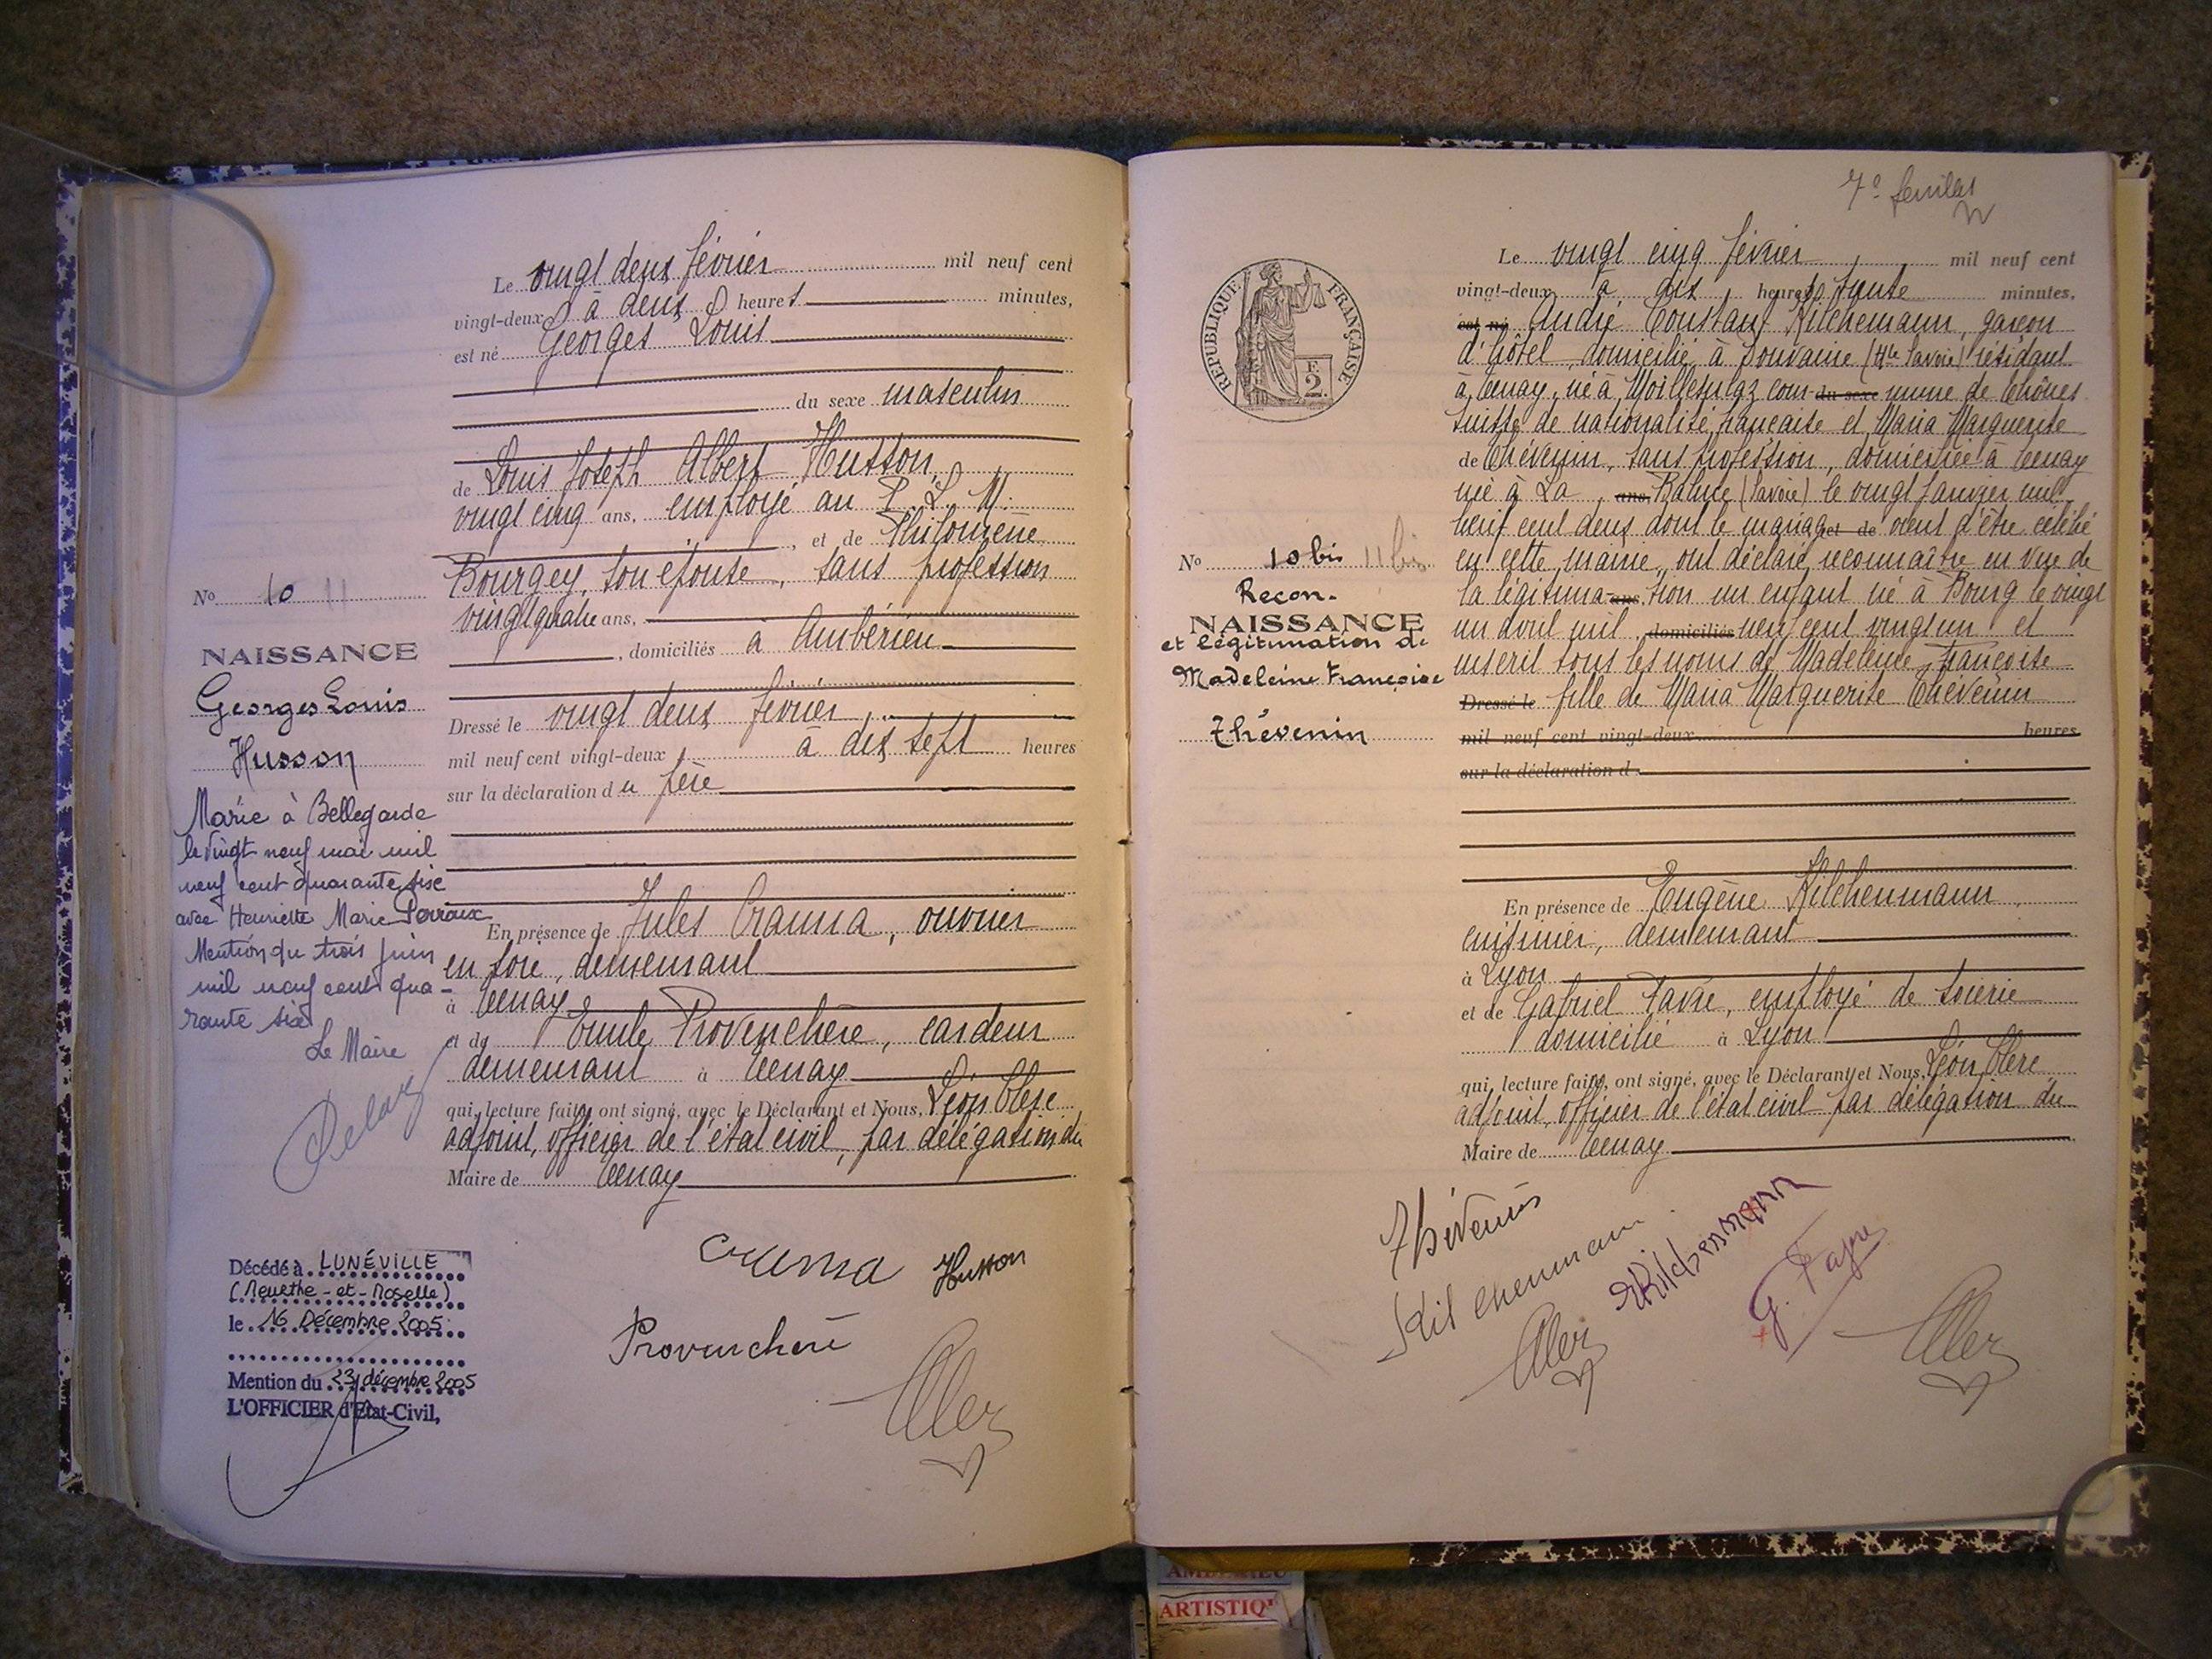 Le vingt deux février mil neuf cent
vingt-deux à deux heures minutes,
est né Georges Louis
du sexe masculin
de Louis Joseph Albert Husson,
vingt cinq ans, employé au P. L. M.
, et de Philomène
Bourgey, son épouse, sans profession
vingt quatre ans,
, domiciliés à Ambérieu
Dressé le vingt deux février,
mil neuf cent vingt-deux à dix sept heures
sur la déclaration du père
En présence de Jules , ouvrier
en soie, demeurant
à Tenay
et de Emile Provenchère, cardeur
demeurant à Tenay
qui, lecture faite, ont signé, avec le Déclarant et Nous, Léon Clerc
adjoint, officier de l'état civil, par délégation du
Maire de Tenay
No 10 11
NAISSANCE
Georges Louis
Husson
Marié à Bellegarde
le vingt neuf mai mil
neuf cent quarante six
avec Henriette Marie Perroux
Mention du trois juin
mil neuf cent qua-
rante six
Le Maire
Décédé à LUNÉVILLE
(Meurthe-et-Moselle)
le 16 Décembre 2005
Mention du 23 décembre 2005
L'OFFICIER d'Etat-Civil,
Husson
Provenchère
7e feuillet
RÉPUBLIQUE FRANÇAISE
F.
2.
Le vingt cinq février mil neuf cent
vingt-deux à dix heures trente minutes,
est né André Constant Kilchenmann, garçon
d'hôtel, domicilié à Douvaine (Hte Savoie) résidant
à Tenay, né à Moillesulaz com du sexe mune de Thônex
Suisse de nationalité française et Maria Marguerite
de Thévenin, sans profession, domiciliée à Tenay
née à La ans, Balme (Savoie) le vingt janvier mil
neuf cent deux dont le mariage et de vient d'être célébré
en cette mairie, ont déclaré reconnaître en vue de
la légitima ans, tion un enfant né à Bourg le vingt
un août mil domiciliés neuf cent vingt un et
inscrit sous les noms de Madeleine Françoise
Dressé le fille de Maria Marguerite Thévenin
mil neuf cent vingt-deux heures
sur la déclaration d
En présence de Eugène Kilchenmann,
cuisinier, demeurant
à Lyon
et de Gabriel Favre, employé de soierie
domicilié à Lyon
qui, lecture faite, ont signé, avec le Déclarant et Nous, Léon Clerc
adjoint, officier de l'état civil par délégation du
Maire de Tenay
No 10 bis 11 bis
Recon.
NAISSANCE
et légitimation de
Madeleine Françoise
Thévenin
Thévenin
Kilchenmann
Kilchenmann
G. Favre
ARTISTIQ